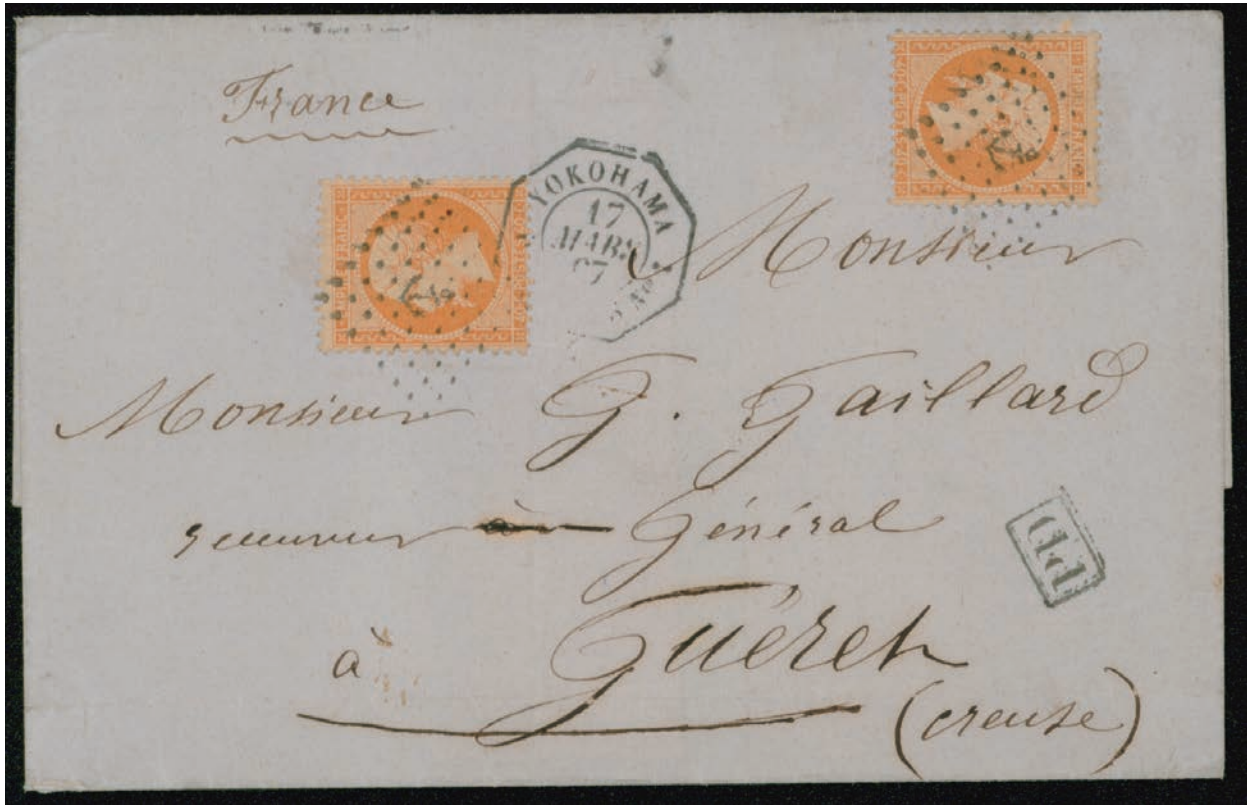 France
YOKOHAMA
17
MARS
67
Monsieur
Monsieur G. Gaillard
receveur Général
à Guéret
(creuse)
PD